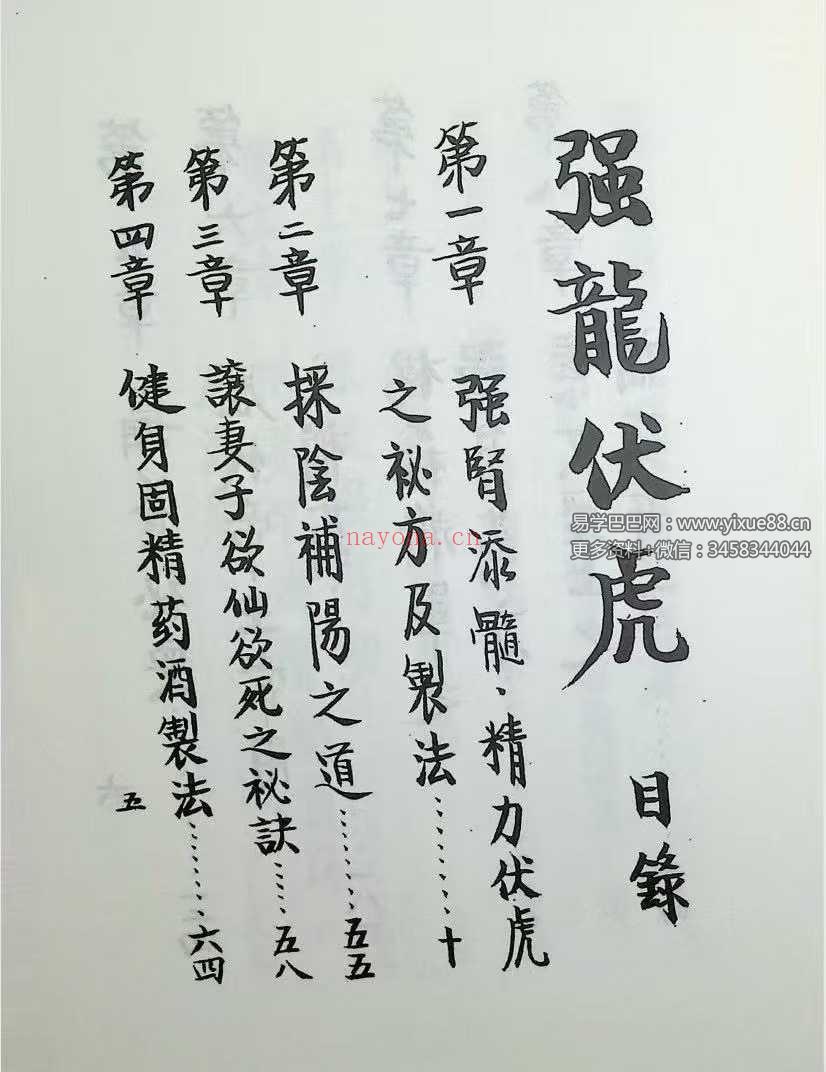 强龍伏虎 目錄
第一章 强腎添髓、精力伏虎
之祕方及製法………十
第二章 採陰補陽之道………五五
第三章 讓妻子欲仙欲死之祕訣……五八
第四章 健身固精药酒製法………六四
五
易学巴巴网：www.yixue88.cn
更多资料+微信：3458344044
nayona.cn